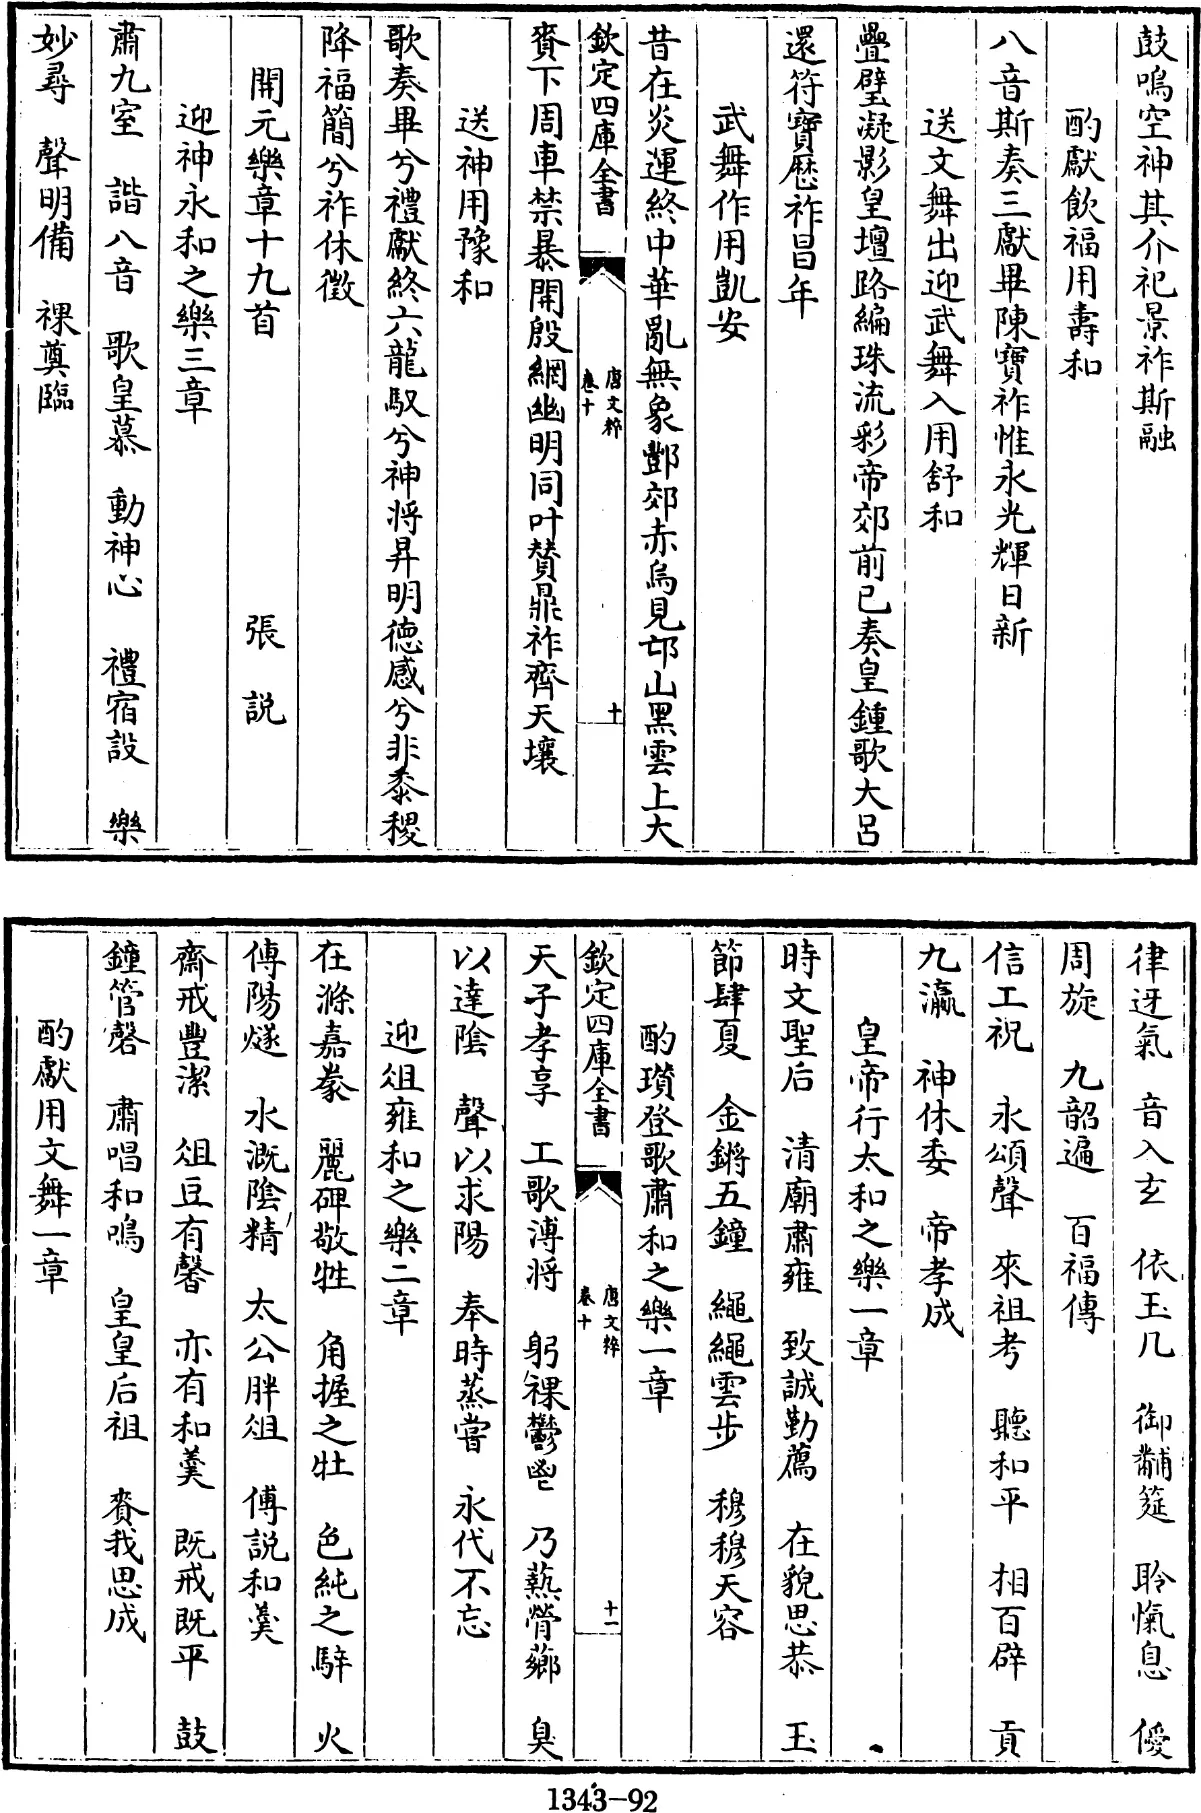 鼓鳴空神其介祀景祚斯融
酌獻飲福用壽和
八音斯奏三獻畢陳寶祚惟永光輝日新
送文舞出迎武舞入用舒和
疊璧凝影皇壇路編珠流彩帝郊前已奏皇鍾歌大呂
還符寶歷祚昌年
武舞作用凱安
昔在炎運終中華亂無象酆郊赤烏見邙山黑雲上大
欽定四庫全書
唐文粹
卷十
十
賚下周車禁暴開殷網幽明同叶贊鼎祚齊天壤
送神用豫和
歌奏畢兮禮獻終六龍馭兮神將昇明德感兮非黍稷
降福簡兮祚休徵
開元樂章十九首 張說
迎神永和之樂三章
肅九室 諧八音 歌皇慕 動神心 禮宿設 樂
妙尋 聲明備 祼奠臨
律迓氣 音入玄 依玉几 御黼筵 聆愾息 僾
周旋 九韶遍 百福傳
信工祝 永頌聲 來祖考 聽和平 相百辟 貢
九瀛 神休委 帝孝成
皇帝行太和之樂一章
時文聖后 清廟肅雍 致誠勤薦 在貌思恭 玉
節肆夏 金鏘五鐘 繩繩雲步 穆穆天容
酌瓚登歌肅和之樂一章
欽定四庫全書
唐文粹
卷十
十一
天子孝享 工歌溥將 躬祼鬱鬯 乃爇膋薌 臭
以達陰 聲以求陽 奉時蒸嘗 永代不忘
迎俎雍和之樂二章
在滌嘉豢 麗碑敬牲 角握之牡 色純之騂 火
傳陽燧 水溉陰精 太公胖俎 傅說和羹
齋戒豐潔 俎豆有馨 亦有和羹 既戒既平 鼓
鐘管磬 肅唱和鳴 皇皇后祖 賚我思成
酌獻用文舞一章
1343-92